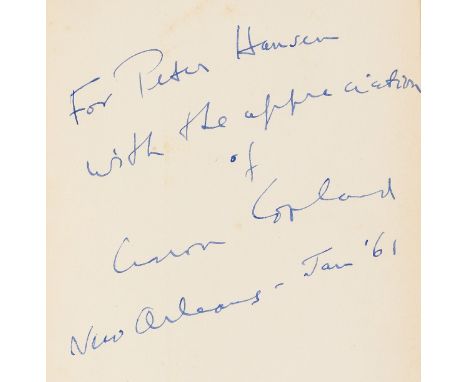 For Peter Hansen
with the appreciation
of
Aaron Copland
New Orleans - Jan '61